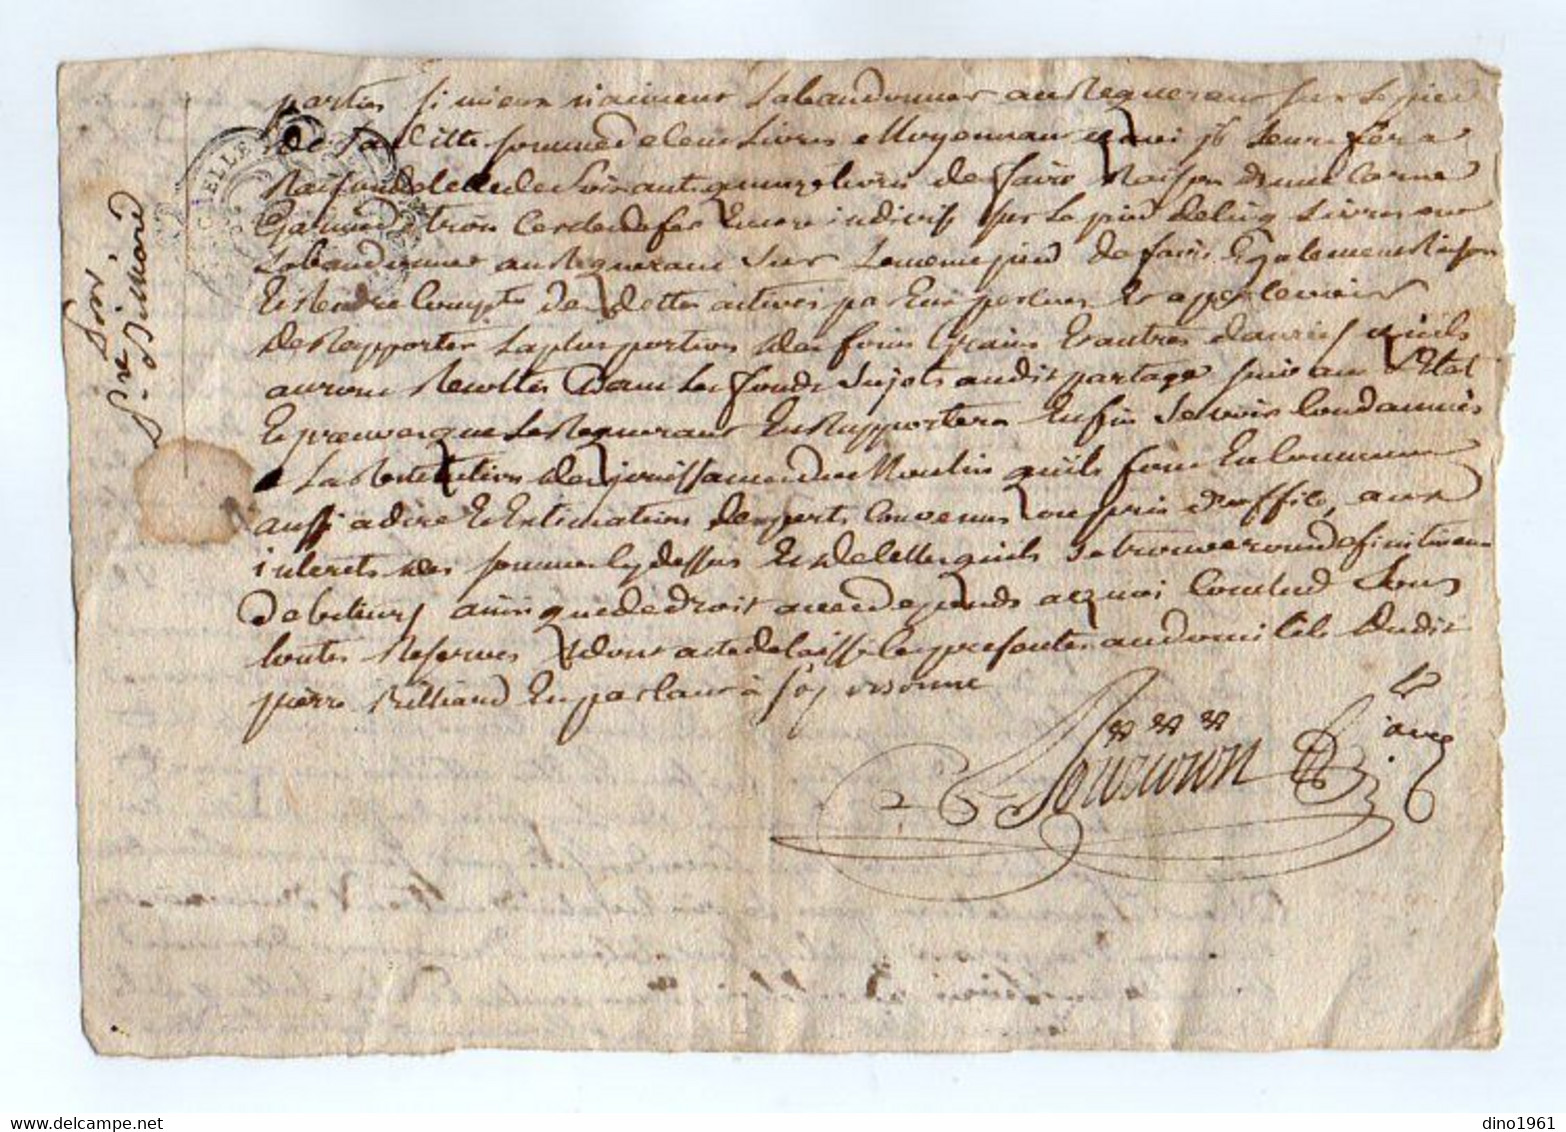 parties si mieux n'aiment labandonner au Requerant sur le pied
de laditte somme de cent livres Moyennant quoi il leur fera
Raison de celle de Soixante quinze livres de faire Raison dune
trois cercle de fer Encore indivis sur le pied de cinq Livres ou
Labandonner au Requerant sur le meme pied de faire Egalement Raison
Et Rendre Compte des dettes actives par Eux percues Et a percevoir
de Rapporter la plus portion des foins grains Et autres danrées quils
auront Recoltés Dans les fonds Sujets audit partage suivant l'Etat
Et preuves que le Requerant En Rapportera Enfin se voir Condamnés
a La Restitution des jouissances du Moulin quils font En Commun
aussi a dire Et Estimations dexperts Convenus ou pris d'office, aux
interets des sommes cy dessus Et de celles quils se trouveront definitivement
debiteurs ainsi que de droit avec depends a quoi Conclud Sous
toutes Reserves dont acte delaissé les presentes au domicile dudit
pierre Billiard En parlant à sa personne